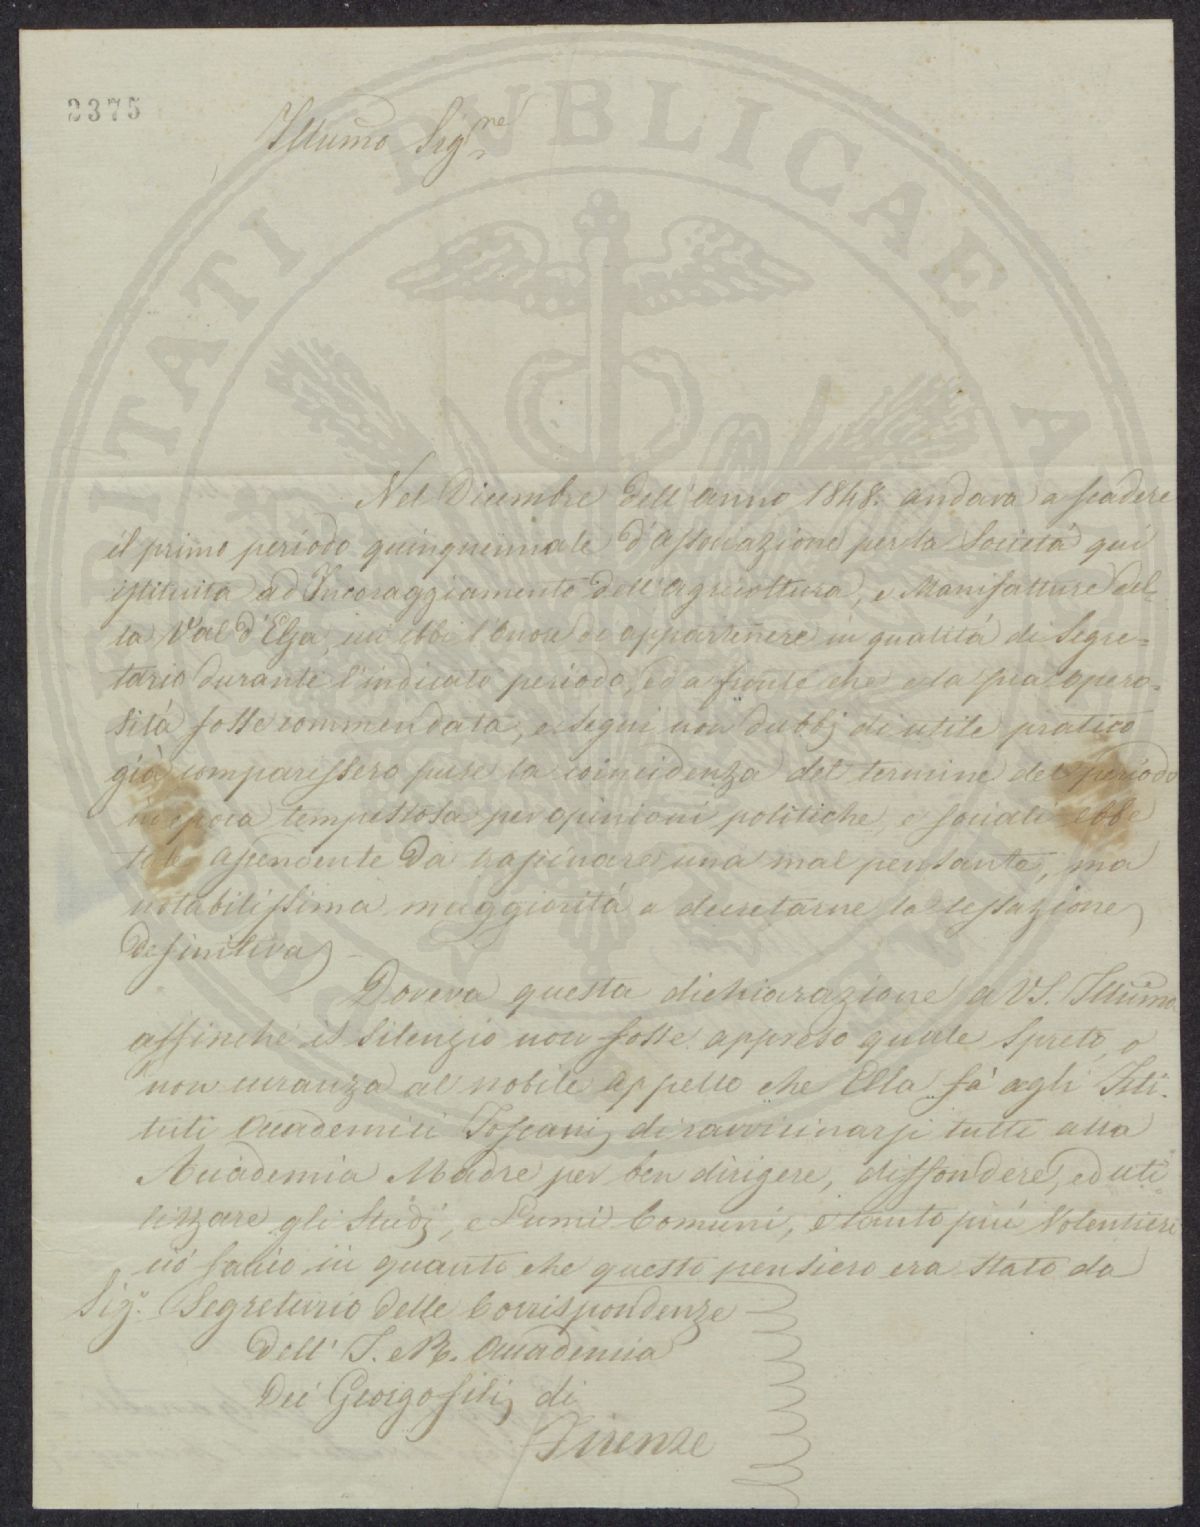 2375
Illumo Sigre
Nel Dicembre dell'anno 1848. andava a scadere
il primo periodo quinquennale d'associazione per la Società qui
istituita ad Incoraggiamento dell'agricoltura, e Manifatture del-
la Val d'Elsa, cui ebbi l'onore di appartenere in qualità di Segre-
tario durante l'indicato periodo, ed a fronte che e la sua opero-
sità fosse commendata, e segni non dubbj di utile pratico
già comparissero pure la coincidenza del termine del periodo
in epoca tempestosa per opinioni politiche e sociali ebbe
tale ascendente da trascinare una mal pensante, ma
notabilissima maggiorità a decretarne la cessazione
definitiva.
Doveva questa dichiarazione a VS. Illuma
affinchè il silenzio non fosse appreso quale spreto, o
non curanza al nobile appello che Ella fà agli Isti-
tuti Accademici Toscani, di ravvicinarsi tutti alla
Accademia Madre per ben dirigere, diffondere, ed uti
lizzare gli studj, e Lumi Comuni, e tanto più volentieri
ciò faccio in quanto che questo pensiero era stato da
Sigr. Segretario delle Corrispondenze
dell' I. e R. Accademia
dei Georgofili, di
Firenze
PUBLICAE